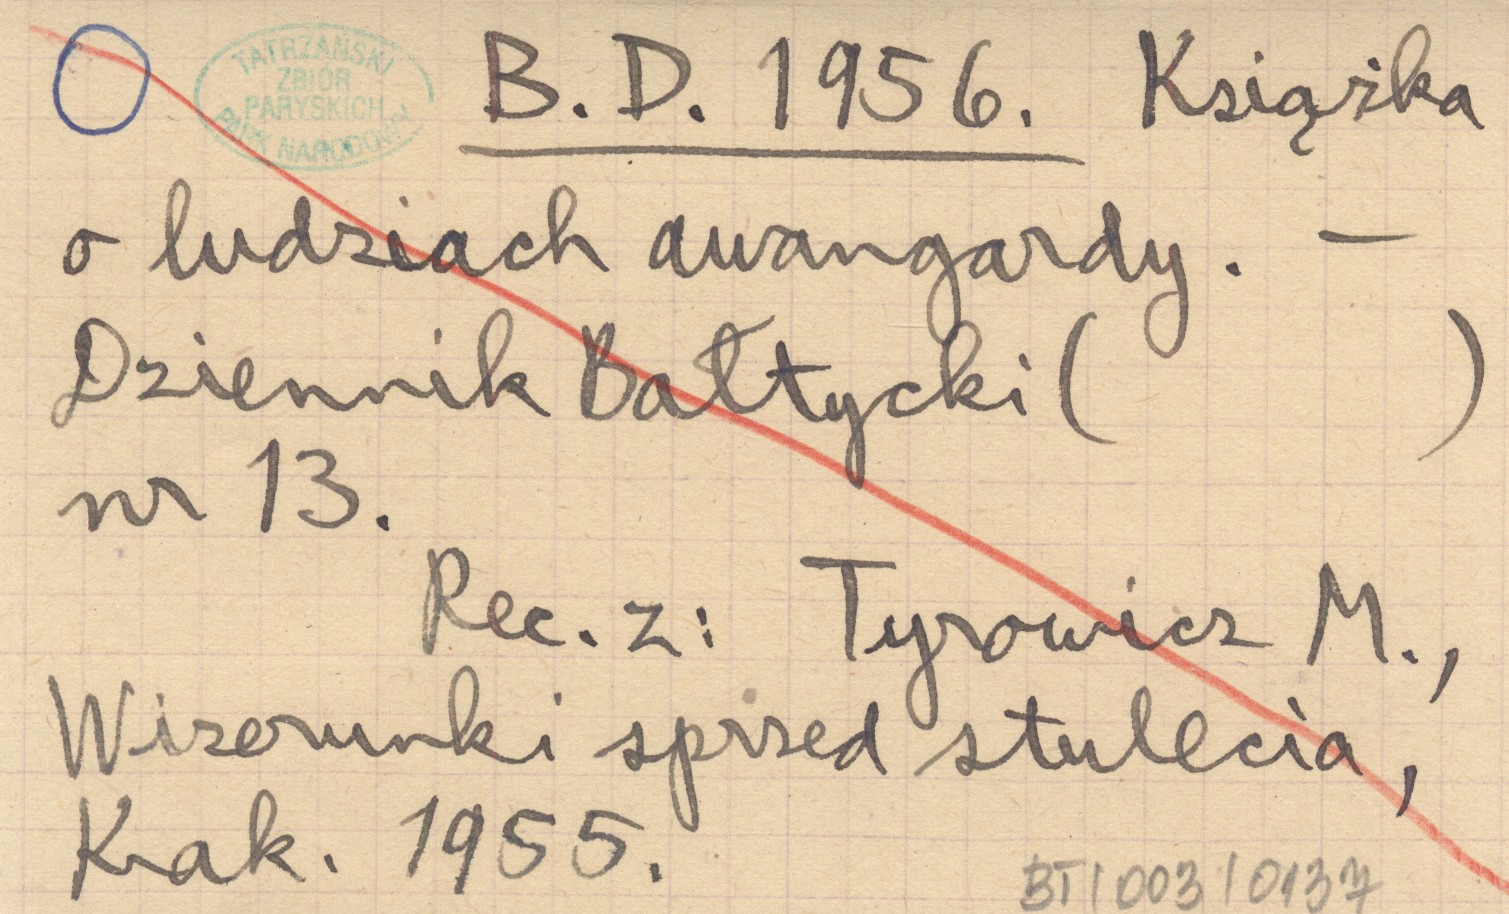 TATRZAŃSKI
ZBIÓR
PARYSKICH
PARK NARODOWY
B.D. 1956. Książka
o ludziach awangardy. —
Dziennik Bałtycki ( )
nr 13.
Rec. z: Tyrowicz M.,
Wizerunki sprzed stulecia,
Krak. 1955.
BT/003/0137